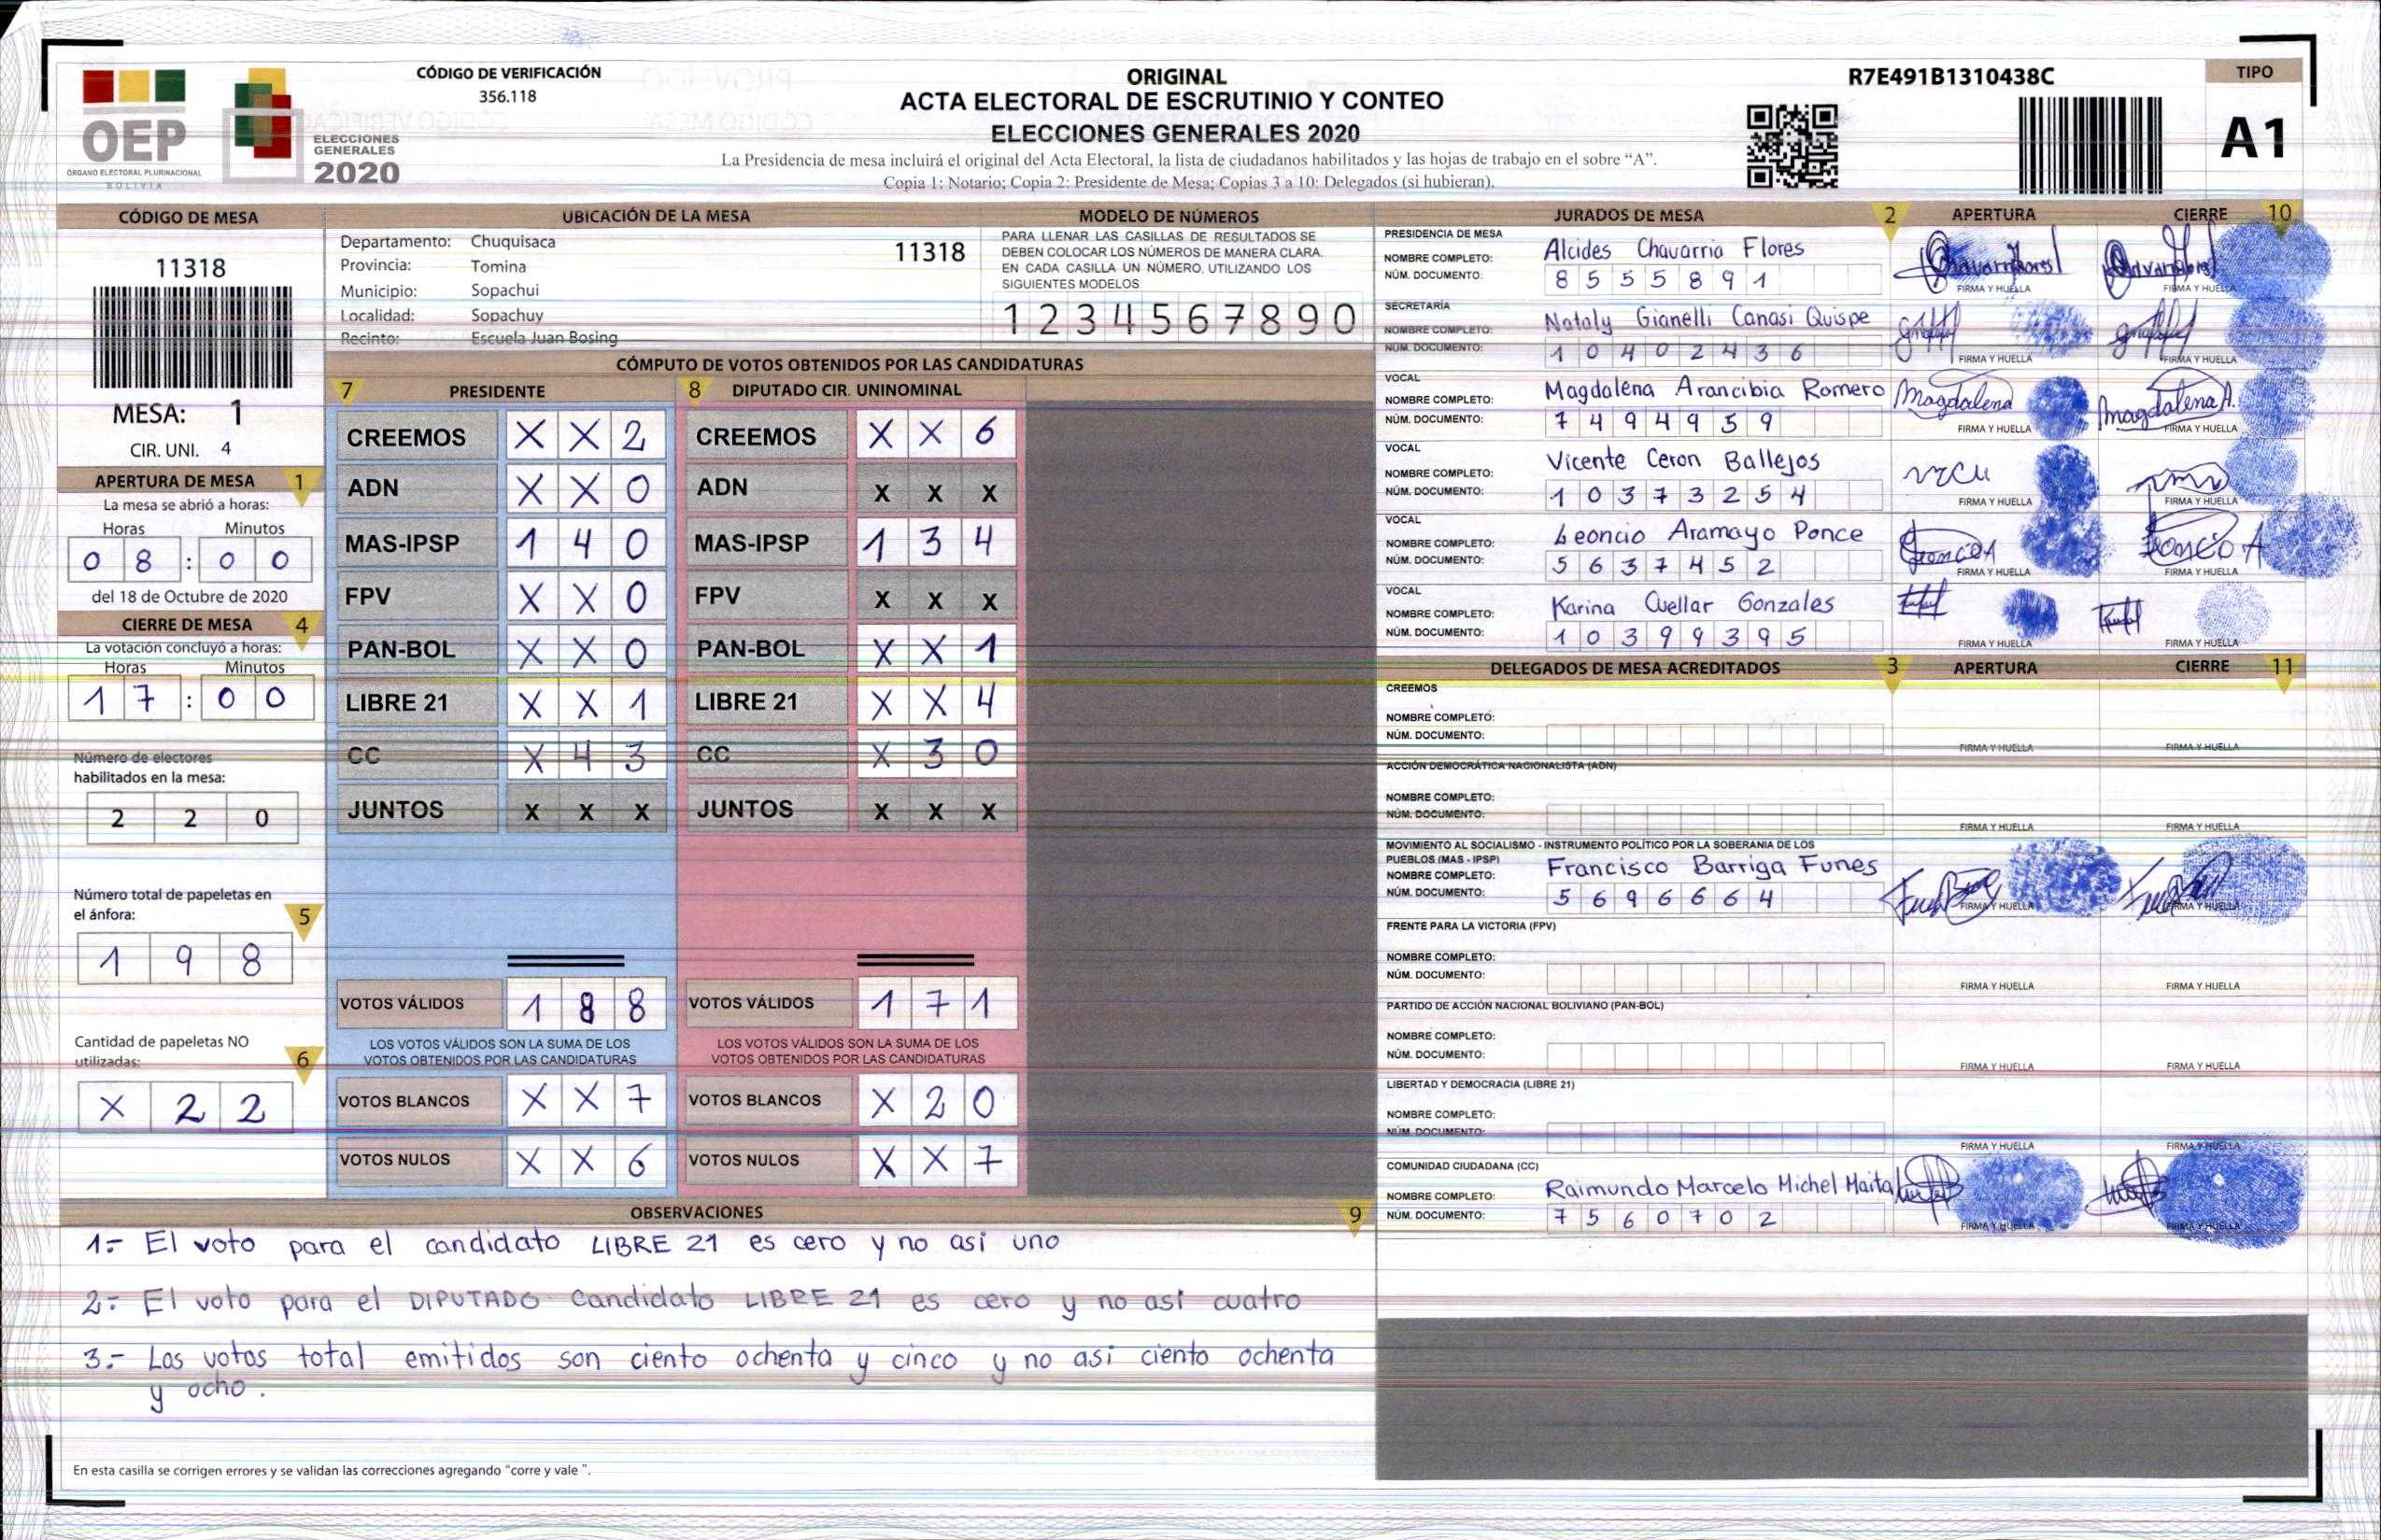 OEP
ÓRGANO ELECTORAL PLURINACIONAL
BOLIVIA
ELECCIONES
GENERALES
2020
CÓDIGO DE VERIFICACIÓN
356.118
ORIGINAL
ACTA ELECTORAL DE ESCRUTINIO Y CONTEO
ELECCIONES GENERALES 2020
La Presidencia de mesa incluirá el original del Acta Electoral, la lista de ciudadanos habilitados y las hojas de trabajo en el sobre “A”.
Copia 1: Notario; Copia 2: Presidente de Mesa; Copias 3 a 10: Delegados (si hubieran).
R7E491B1310438C
TIPO
A1
CÓDIGO DE MESA
11318
MESA: 1
CIR. UNI. 4
APERTURA DE MESA 1
La mesa se abrió a horas:
Horas Minutos
0 8 : 0 0
del 18 de Octubre de 2020
CIERRE DE MESA 4
La votación concluyó a horas:
Horas Minutos
1 7 : 0 0
Número de electores
habilitados en la mesa:
2 2 0
Número total de papeletas en
el ánfora: 5
1 9 8
Cantidad de papeletas NO
utilizadas: 6
X 2 2
UBICACIÓN DE LA MESA
Departamento: Chuquisaca 11318
Provincia: Tomina
Municipio: Sopachui
Localidad: Sopachuy
Recinto: Escuela Juan Bosing
MODELO DE NÚMEROS
PARA LLENAR LAS CASILLAS DE RESULTADOS SE
DEBEN COLOCAR LOS NÚMEROS DE MANERA CLARA.
EN CADA CASILLA UN NÚMERO, UTILIZANDO LOS
SIGUIENTES MODELOS
1 2 3 4 5 6 7 8 9 0
CÓMPUTO DE VOTOS OBTENIDOS POR LAS CANDIDATURAS
7 PRESIDENTE 8 DIPUTADO CIR. UNINOMINAL
CREEMOS X X 2 CREEMOS X X 6
ADN X X 0 ADN X X X
MAS-IPSP 1 4 0 MAS-IPSP 1 3 4
FPV X X 0 FPV X X X
PAN-BOL X X 0 PAN-BOL X X 1
LIBRE 21 X X 1 LIBRE 21 X X 4
CC X 4 3 CC X 3 0
JUNTOS X X X JUNTOS X X X
VOTOS VÁLIDOS 1 8 8 VOTOS VÁLIDOS 1 7 1
LOS VOTOS VÁLIDOS SON LA SUMA DE LOS LOS VOTOS VÁLIDOS SON LA SUMA DE LOS
VOTOS OBTENIDOS POR LAS CANDIDATURAS VOTOS OBTENIDOS POR LAS CANDIDATURAS
VOTOS BLANCOS X X 7 VOTOS BLANCOS X 2 0
VOTOS NULOS X X 6 VOTOS NULOS X X 7
OBSERVACIONES 9
1.- El voto para el candidato LIBRE 21 es cero y no asi uno
2.- El voto para el DIPUTADO candidato LIBRE 21 es cero y no asi cuatro
3.- Los votos total emitidos son ciento ochenta y cinco y no asi ciento ochenta
y ocho.
En esta casilla se corrigen errores y se validan las correcciones agregando “corre y vale ”.
JURADOS DE MESA 2 APERTURA CIERRE 10
PRESIDENCIA DE MESA
NOMBRE COMPLETO: Alcides Chavarria Flores
NÚM. DOCUMENTO: 8 5 5 5 8 9 1
FIRMA Y HUELLA FIRMA Y HUELLA
SECRETARÍA
NOMBRE COMPLETO: Nataly Gianelli Canasi Quispe
NÚM. DOCUMENTO: 1 0 4 0 2 4 3 6
FIRMA Y HUELLA FIRMA Y HUELLA
VOCAL
NOMBRE COMPLETO: Magdalena Arancibia Romero Magdalena Magdalena A.
NÚM. DOCUMENTO: 7 4 9 4 9 5 9
FIRMA Y HUELLA FIRMA Y HUELLA
VOCAL
NOMBRE COMPLETO: Vicente Ceron Ballejos
NÚM. DOCUMENTO: 1 0 3 7 3 2 5 4
FIRMA Y HUELLA FIRMA Y HUELLA
VOCAL
NOMBRE COMPLETO: Leoncio Aramayo Ponce
NÚM. DOCUMENTO: 5 6 3 7 4 5 2
FIRMA Y HUELLA FIRMA Y HUELLA
VOCAL
NOMBRE COMPLETO: Karina Cuellar Gonzales
NÚM. DOCUMENTO: 1 0 3 9 9 3 9 5
FIRMA Y HUELLA FIRMA Y HUELLA
DELEGADOS DE MESA ACREDITADOS 3 APERTURA CIERRE 11
CREEMOS
NOMBRE COMPLETO:
NÚM. DOCUMENTO:
FIRMA Y HUELLA FIRMA Y HUELLA
ACCIÓN DEMOCRÁTICA NACIONALISTA (ADN)
NOMBRE COMPLETO:
NÚM. DOCUMENTO:
FIRMA Y HUELLA FIRMA Y HUELLA
MOVIMIENTO AL SOCIALISMO - INSTRUMENTO POLÍTICO POR LA SOBERANIA DE LOS
PUEBLOS (MAS - IPSP)
NOMBRE COMPLETO: Francisco Barriga Funes
NÚM. DOCUMENTO: 5 6 9 6 6 6 4
FIRMA Y HUELLA FIRMA Y HUELLA
FRENTE PARA LA VICTORIA (FPV)
NOMBRE COMPLETO:
NÚM. DOCUMENTO:
FIRMA Y HUELLA FIRMA Y HUELLA
PARTIDO DE ACCIÓN NACIONAL BOLIVIANO (PAN-BOL)
NOMBRE COMPLETO:
NÚM. DOCUMENTO:
FIRMA Y HUELLA FIRMA Y HUELLA
LIBERTAD Y DEMOCRACIA (LIBRE 21)
NOMBRE COMPLETO:
NÚM. DOCUMENTO:
FIRMA Y HUELLA FIRMA Y HUELLA
COMUNIDAD CIUDADANA (CC)
NOMBRE COMPLETO: Raimundo Marcelo Michel Maita
NÚM. DOCUMENTO: 7 5 6 0 7 0 2
FIRMA Y HUELLA FIRMA Y HUELLA